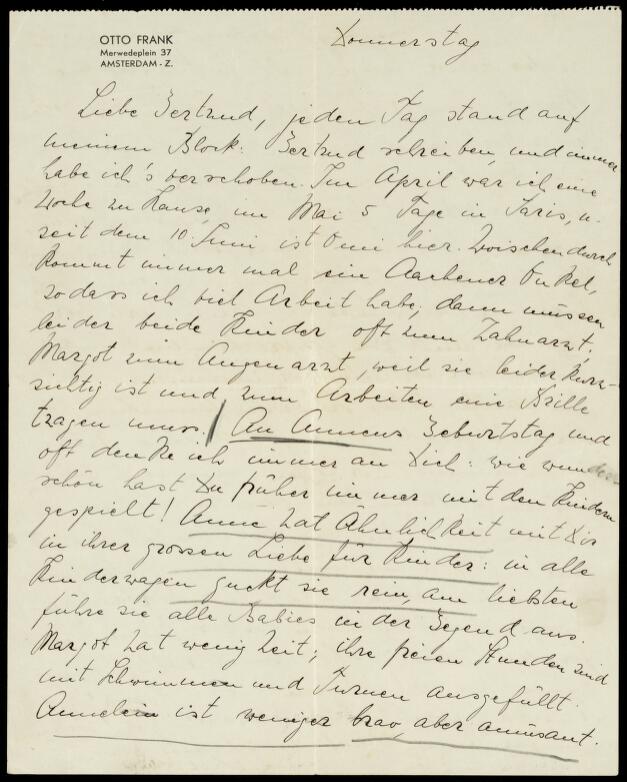 OTTO FRANK
Merwedeplein 37
AMSTERDAM - Z.
Donnerstag
Liebe Gertrud, jeden Tag stand auf
meinem Block: Gertrud schreiben, und immer
habe ich's verschoben. Im April war ich eine
Woche zu Hause, im Mai 5 Tage in Paris, u.
seit dem 10. Juni ist Omi hier. Zwischendurch
kommt immer mal ein Aachener Onkel,
sodass ich viel Arbeit habe, dann müssen
leider beide Kinder oft zum Zahnarzt,
Margot zum Augenarzt, weil sie leider kurz-
sichtig ist und zum Arbeiten eine Brille
tragen muss. An Annens Geburtstag und
oft denke ich immer an Dich: wie wunder-
schön hast Du früher immer mit den Kindern
gespielt! Anne hat Ähnlichkeit mit Dir
in ihrer grossen Liebe für Kinder: in alle
Kinderwagen guckt sie rein, am liebsten
führe sie alle Babies in der Gegend aus.
Margot hat wenig Zeit; ihre freien Stunden sind
mit Schwimmen und Turnen ausgefüllt.
Annelein ist weniger brav, aber amüsant.